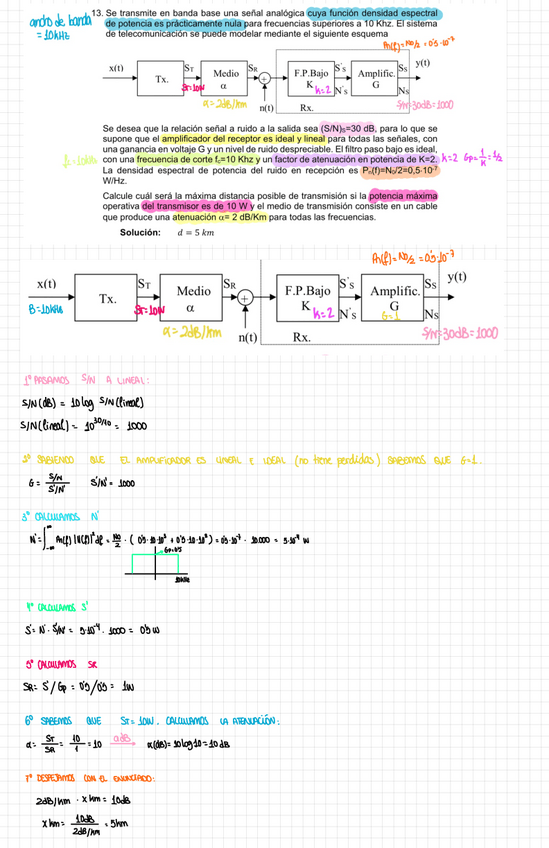 ancho de banda = 10KHz
13. Se transmite en banda base una señal analógica cuya función densidad espectral
de potencia es prácticamente nula para frecuencias superiores a 10 Khz. El sistema
de telecomunicación se puede modelar mediante el siguiente esquema
Pn(f)=No/2=0'5·10⁻⁷
x(t) Tx. S_T Medio α S_R + F.P.Bajo K S's N's Amplific. G S_S N_S y(t)
ST=10W K=2
α=2dB/km n(t) Rx. S/N=30dB=1000
Se desea que la relación señal a ruido a la salida sea (S/N)s=30 dB, para lo que se
supone que el amplificador del receptor es ideal y lineal para todas las señales, con
una ganancia en voltaje G y un nivel de ruido despreciable. El filtro paso bajo es ideal,
fc=10KHz con una frecuencia de corte fc=10 Khz y un factor de atenuación en potencia de K=2. K=2 Gp=1/K=1/2
La densidad espectral de potencia del ruido en recepción es Pn(f)=N₀/2=0,5·10⁻⁷
W/Hz.
Calcule cuál será la máxima distancia posible de transmisión si la potencia máxima
operativa del transmisor es de 10 W y el medio de transmisión consiste en un cable
que produce una atenuación α= 2 dB/Km para todas las frecuencias.
Solución: d = 5 km
Pn(f)=No/2=0'5·10⁻⁷
x(t) Tx. S_T Medio α S_R + F.P.Bajo K S's N's Amplific. G S_S N_S y(t)
B=10KHz ST=10W K=2 G=1
α=2dB/km n(t) Rx. S/N=30dB=1000
1º PASAMOS S/N A LINEAL:
S/N(dB) = 10log S/N(lineal)
S/N(lineal) = 10^30/10 = 1000
2º SABIENDO QUE EL AMPLIFICADOR ES LINEAL E IDEAL (no tiene perdidas) SABEMOS QUE G=1.
G = S/N / S'/N' S'/N' = 1000
3º CALCULAMOS N'
N' = ∫ Pn(f) |H(f)|² df = No/2 · (0'5·10·10³ + 0'5·10·10³) = 0'5·10⁻⁷ · 10.000 = 5·10⁻⁴ W
Gp=0'5
10KHz
4º CALCULAMOS S'
S' = N' · S'/N' = 5·10⁻⁴ · 1000 = 0'5 W
5º CALCULAMOS SR
SR = S'/Gp = 0'5/0'5 = 1W
6º SABEMOS QUE ST=10W. CALCULAMOS LA ATENUACIÓN:
α = ST/SR = 10/1 = 10 a dB α(dB) = 10log10 = 10dB
7º DESPEJAMOS CON EL ENUNCIADO:
2dB/km · x km = 10dB
x km = 10dB / 2dB/km = 5km